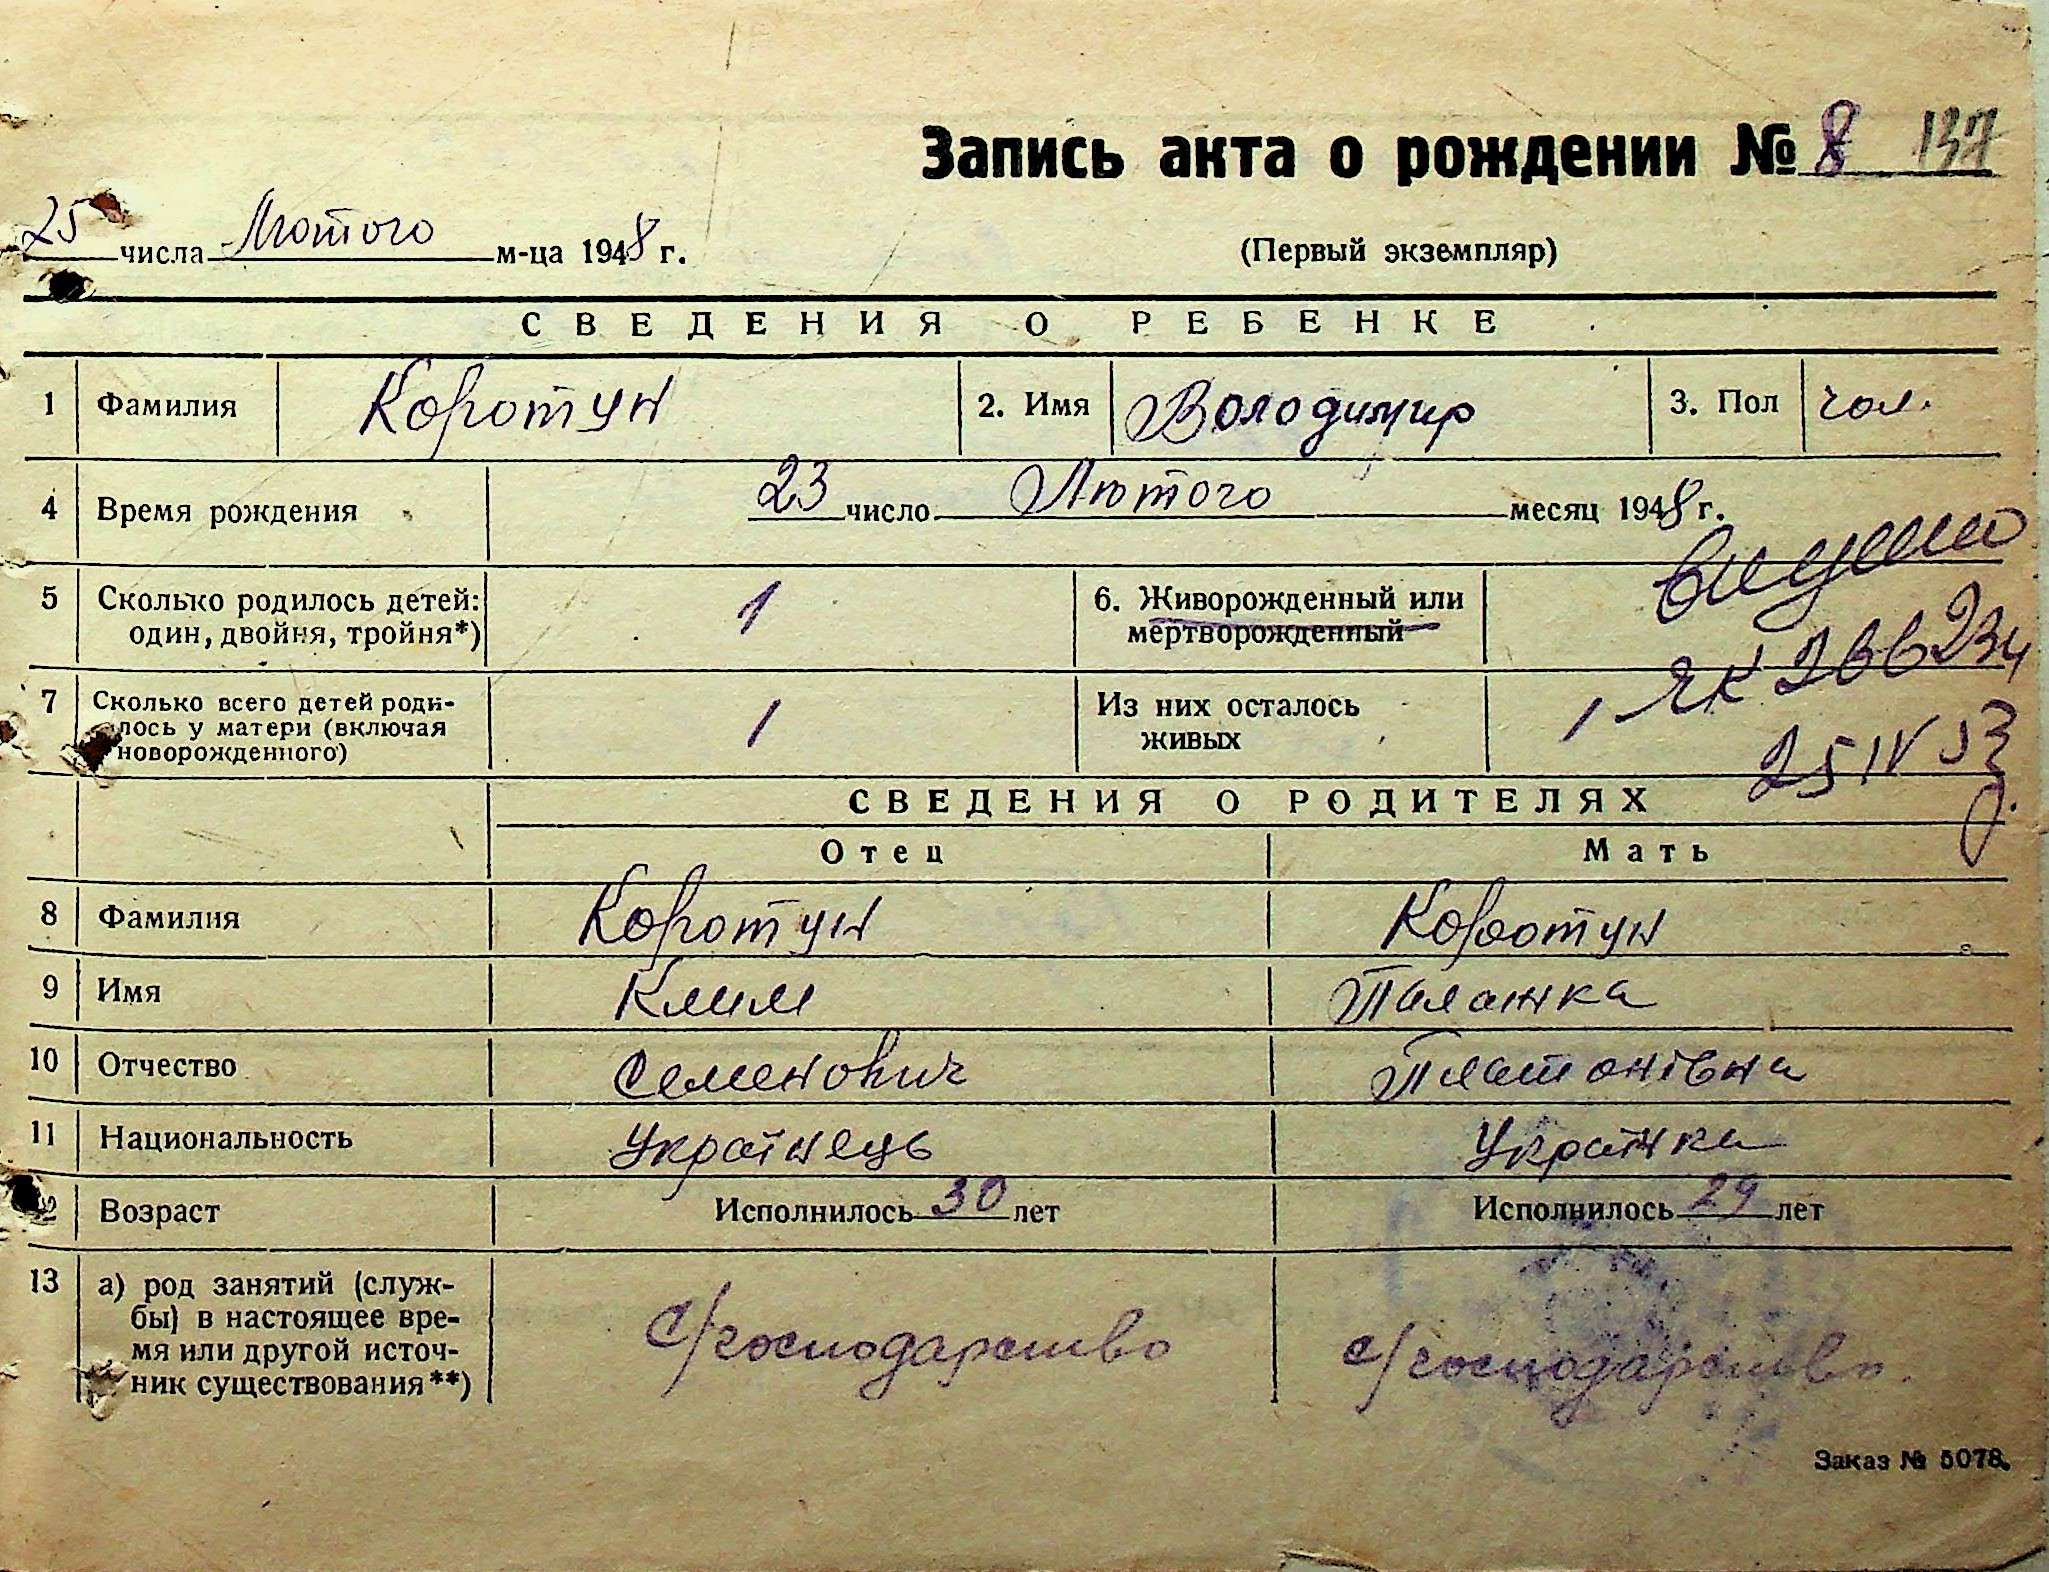 Запись акта о рождении № 8 137
25 числа Лютого м-ца 1948 г.
(Первый экземпляр)
СВЕДЕНИЯ О РЕБЕНКЕ
1 Фамилия Коротун 2. Имя Володимир 3. Пол чол.
4 Время рождения 23 число Лютого месяц 1948 г.
5 Сколько родилось детей: один, двойня, тройня*) 1 6. Живорожденный или мертворожденный
7 Сколько всего детей родилось у матери (включая новорожденного) 1 Из них осталось живых 1
25 IV 53
СВЕДЕНИЯ О РОДИТЕЛЯХ
Отец Мать
8 Фамилия Коротун Коротун
9 Имя Клим Палажка
10 Отчество Семенович Платонівна
11 Национальность Українець Українка
Возраст Исполнилось 30 лет Исполнилось 29 лет
13 а) род занятий (служ-
бы) в настоящее вре-
мя или другой источ-
ник существования**)
с/господарство с/господарство.
Заказ № 5078.